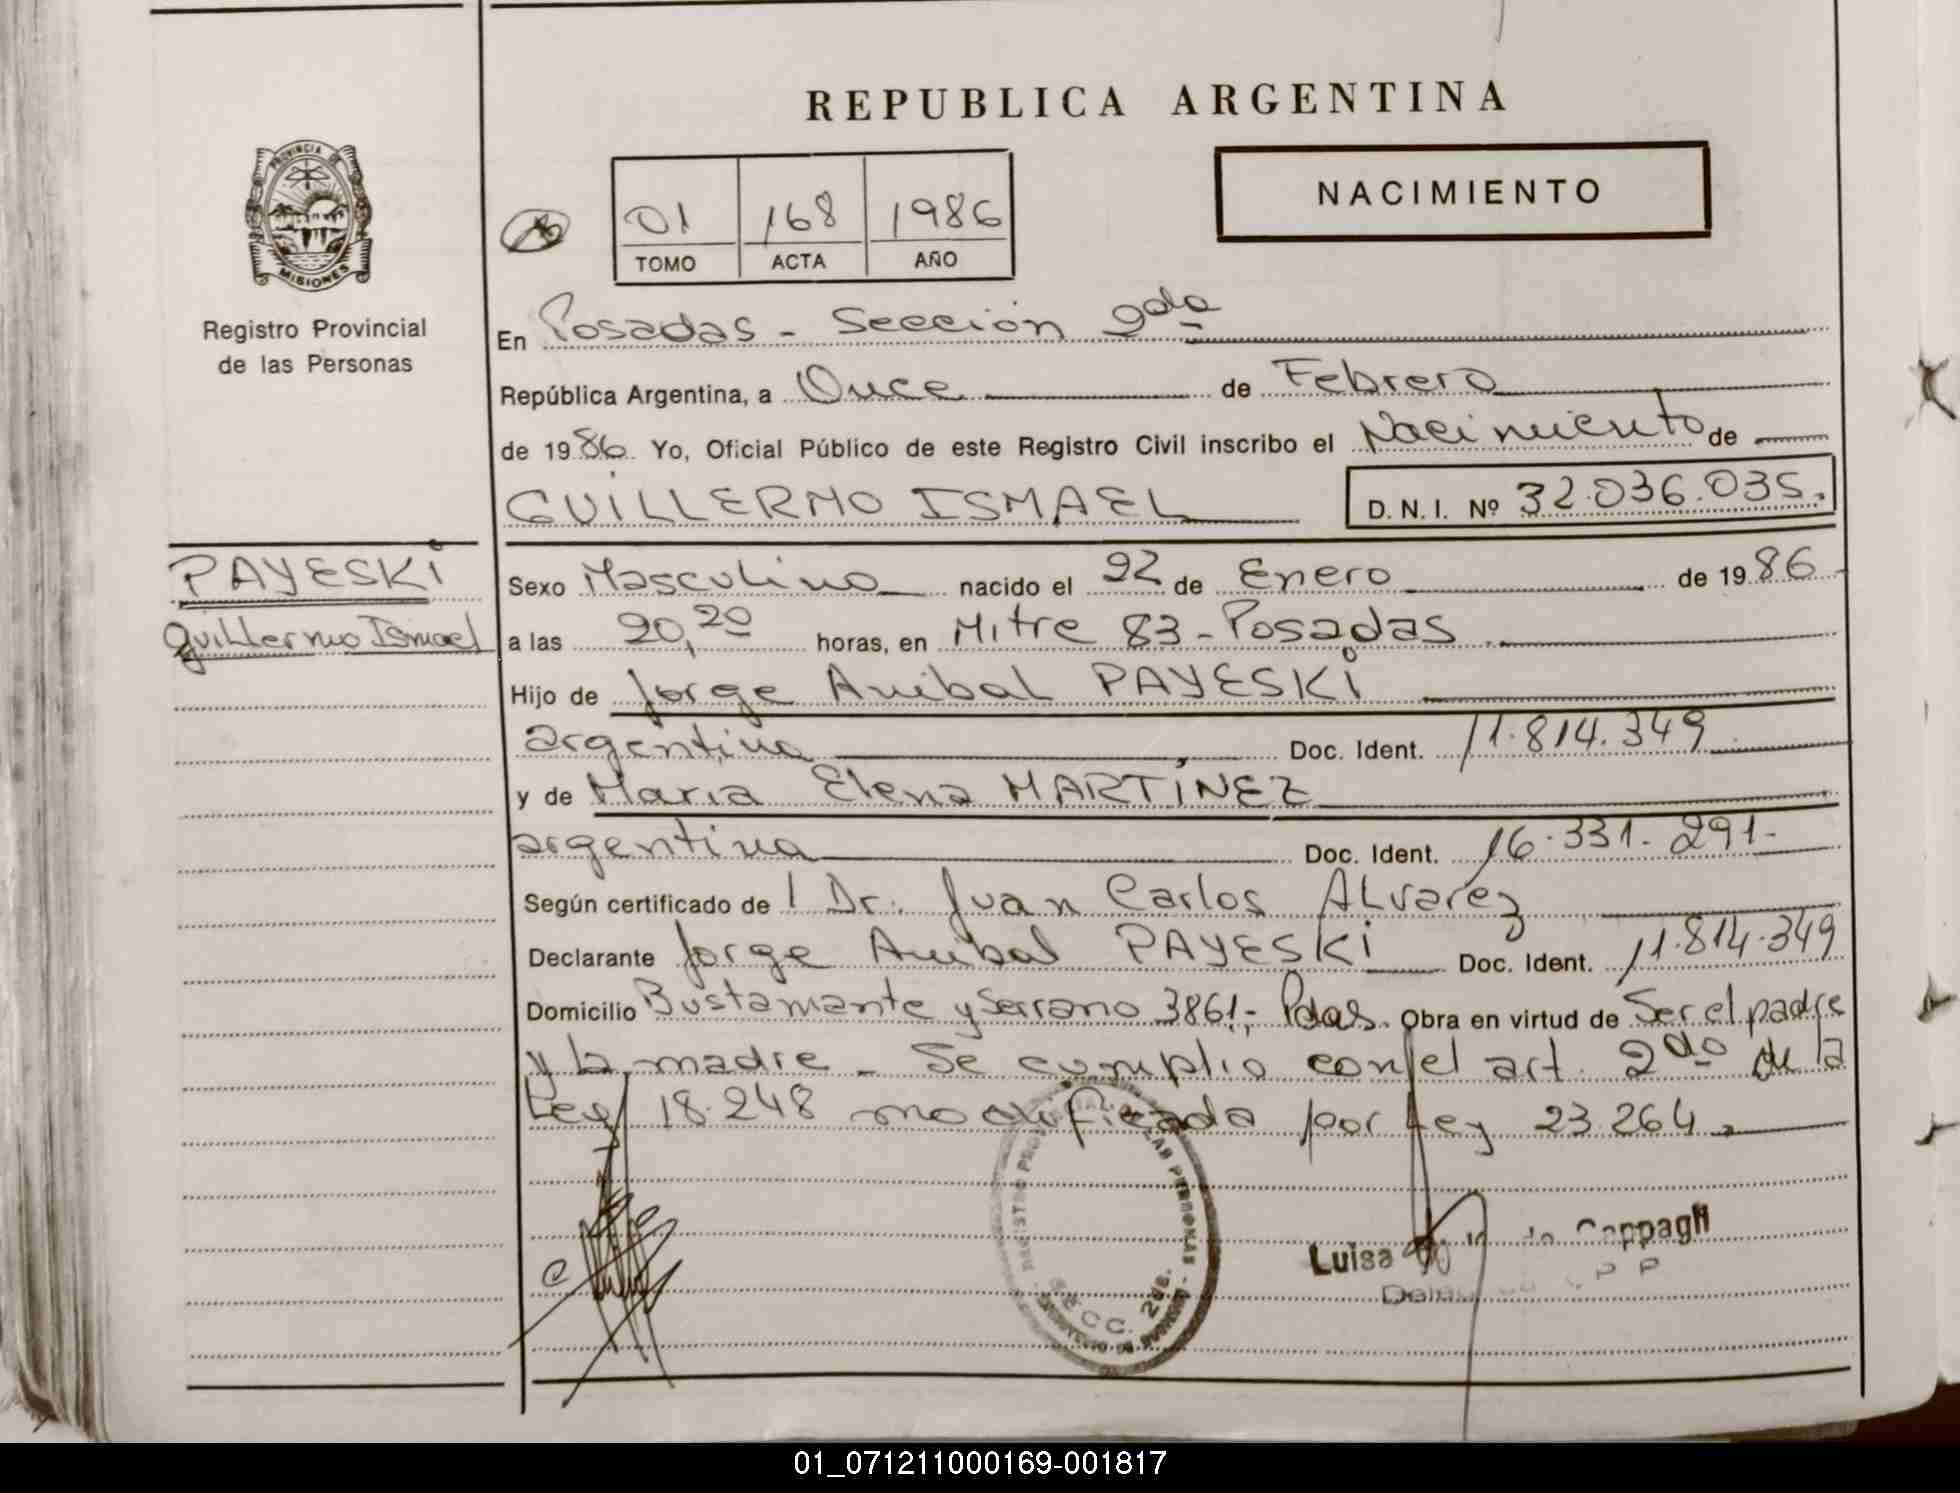 REPUBLICA ARGENTINA
PROVINCIA DE
MISIONES
Registro Provincial
de las Personas
01 168 1986
TOMO ACTA AÑO
NACIMIENTO
En Posadas - Sección 2da
República Argentina, a Once de Febrero
de 1986. Yo, Oficial Público de este Registro Civil inscribo el Nacimiento de
GUILLERMO ISMAEL D.N.I. Nº 32.036.035.
PAYESKI
Guillermo Ismael
Sexo Masculino nacido el 22 de Enero de 1986
a las 20,20 horas, en Mitre 83 - Posadas
Hijo de Jorge Anibal PAYESKI
argentino Doc. Ident. 11.814.349
y de María Elena MARTÍNEZ
argentina Doc. Ident. 16.331.291-
Según certificado de l Dr. Juan Carlos Alvarez
Declarante Jorge Anibal PAYESKI Doc. Ident. 11.814.349
Domicilio Bustamante y Serrano 3861,- Pdas. Obra en virtud de Ser el padre
y la madre - Se cumplio con el art. 2do de la
Ley 18.248 modificada por Ley 23.264.
REGISTRO PROVINCIAL DE LAS PERSONAS
SECC. 2da.
Luisa Cappagli
01_071211000169-001817